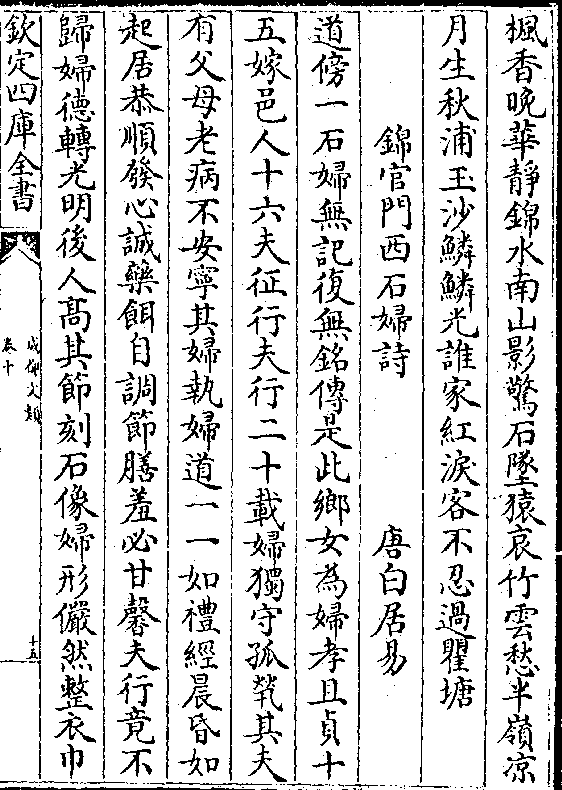 楓香晚華靜錦水南山影驚石墜猿哀竹雲愁半嶺凉
月生秋浦玉沙鱗鱗光誰家紅淚客不忍過瞿塘
錦官門西石婦詩 唐白居易
道傍一石婦無記復無銘傳是此鄉女為婦孝且貞十
五嫁邑人十六夫征行夫行二十載婦獨守孤煢其夫
有父母老病不安寧其婦執婦道一一如禮經晨昏如
起居恭順發心誠藥餌自調節膳羞必甘馨夫行竟不
歸婦德轉光明後人髙其節刻石像婦形儼然整衣巾
欽定四庫全書
成都文類
卷十
十五